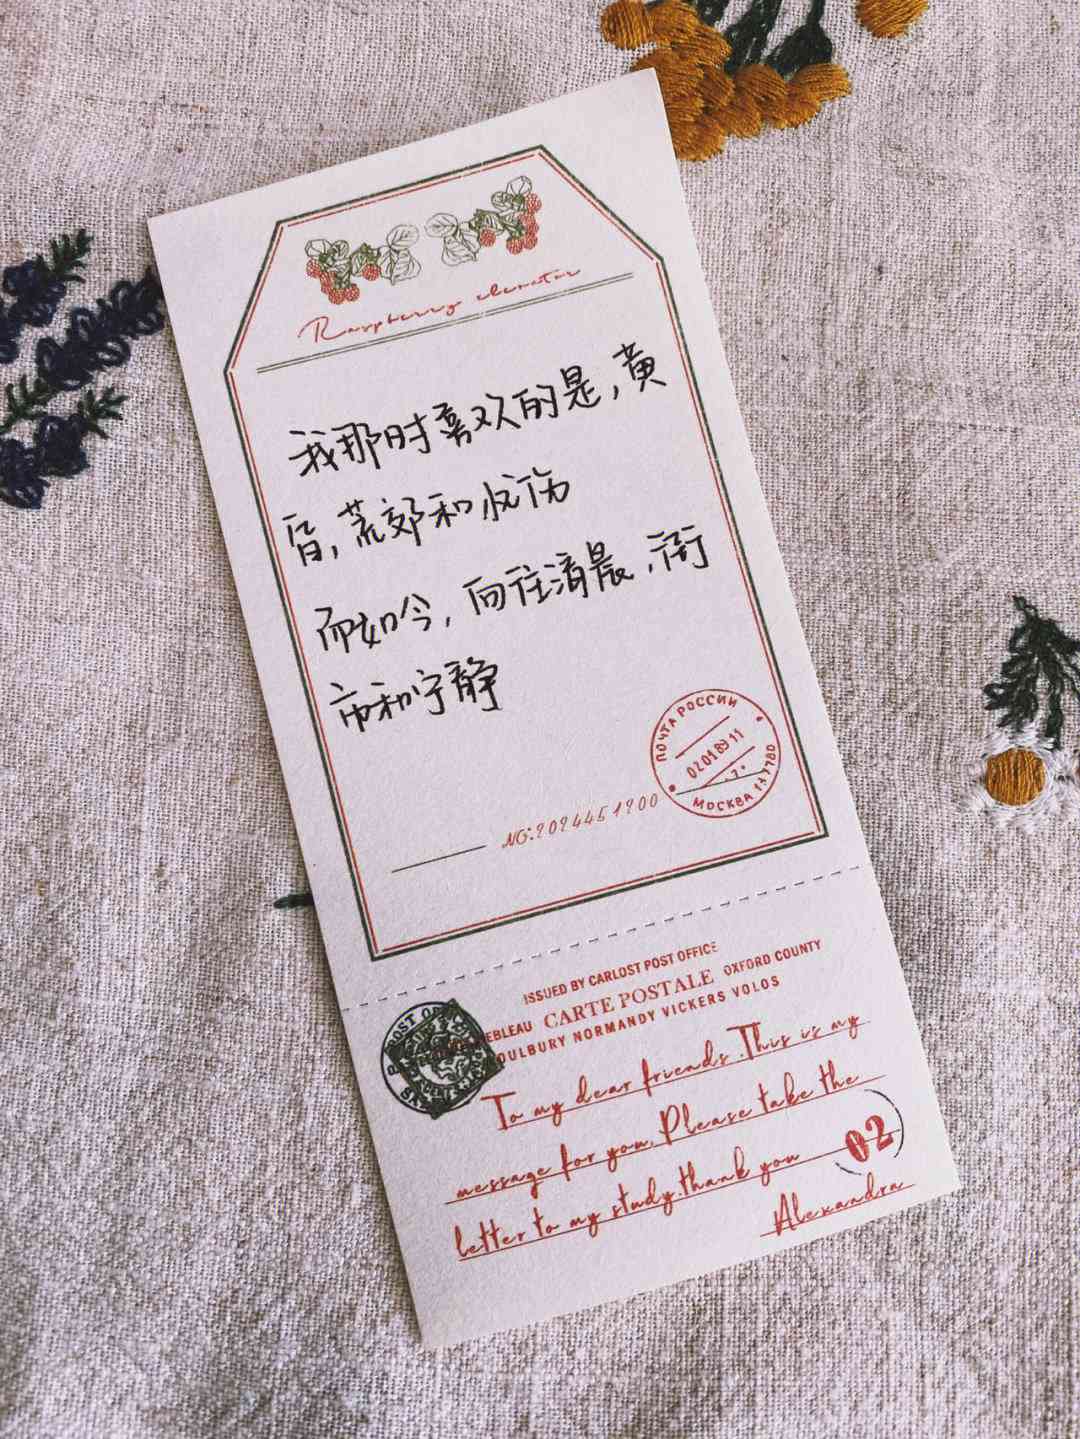 Raspberry elevator
我那时喜欢的是,黄
昏,荒郊和忧伤
而如今,向往清晨,街
市和宁静
ПОЧТА РОССИИ
02018911
.7.
МОСКВА 117780
NO:2024451900
ISSUED BY CARLOST POST OFFICE
EBLEAU CARTE POSTALE OXFORD COUNTY
OULBURY NORMANDY VICKERS VOLOS
To my dear friends.This is my
message for you.Please take the
letter to my study.thank you
02
Alexandra